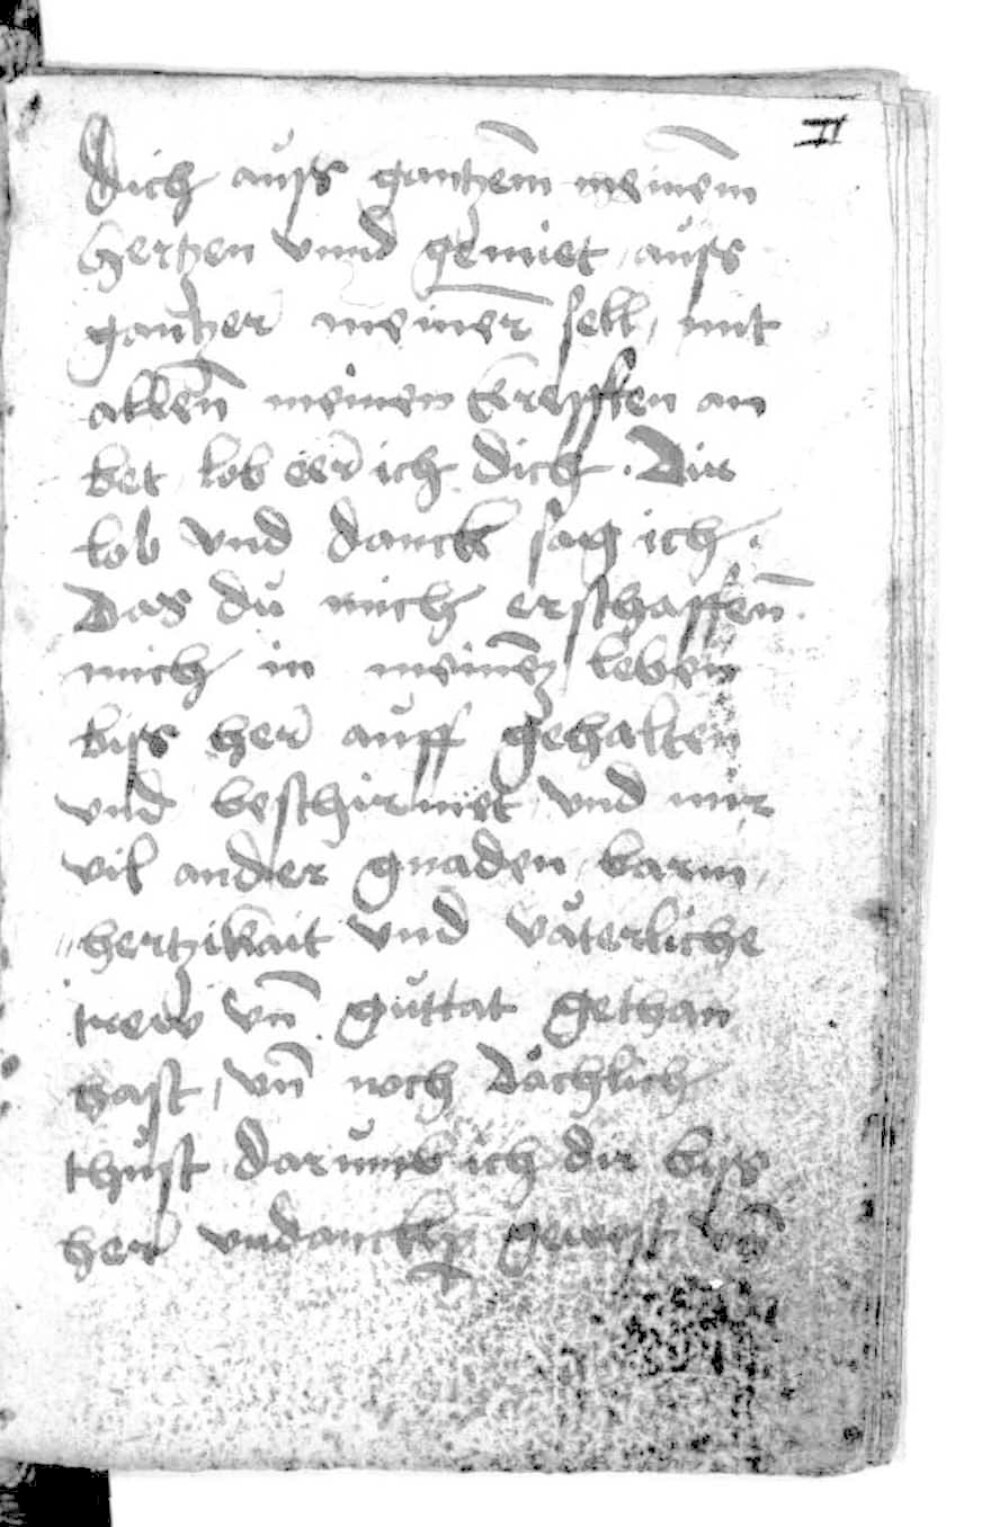 II
Dich auß gantzem̄ meinem̄
hertzen vnnd gemiet, auß
gantzer meiner̄ sell, mit
allen̄ meinen krefften an
bet, lob eer ich dich. Dir
lob vnd danck sag ich.
Das du mich erschaffen̄.
mich in meinē leben
biß her auff gehalten
vnd beschirmet, vnd mir
vil ander gnaden, barm,
"hertzikait vnd väterliche
trew vn̄ guttat gethan
hast, vn̄ noch dächlich
thust darumb ich dir biß
her vndanckp gewest vn̄